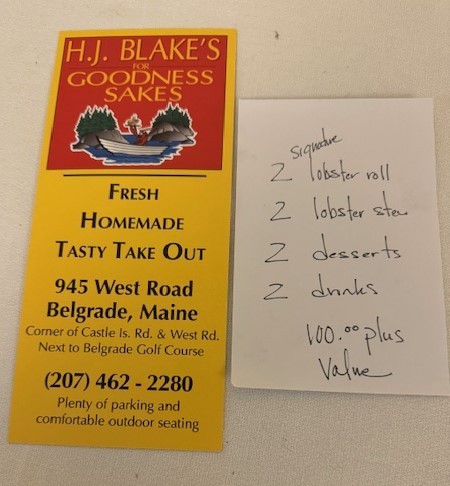 H.J. BLAKE'S
FOR
GOODNESS
SAKES
FRESH
HOMEMADE
TASTY TAKE OUT
945 West Road
Belgrade, Maine
Corner of Castle Is. Rd. & West Rd.
Next to Belgrade Golf Course
(207) 462 - 2280
Plenty of parking and
comfortable outdoor seating
signature
2 lobster roll
2 lobster stew
2 desserts
2 drinks
100.00 plus
Value